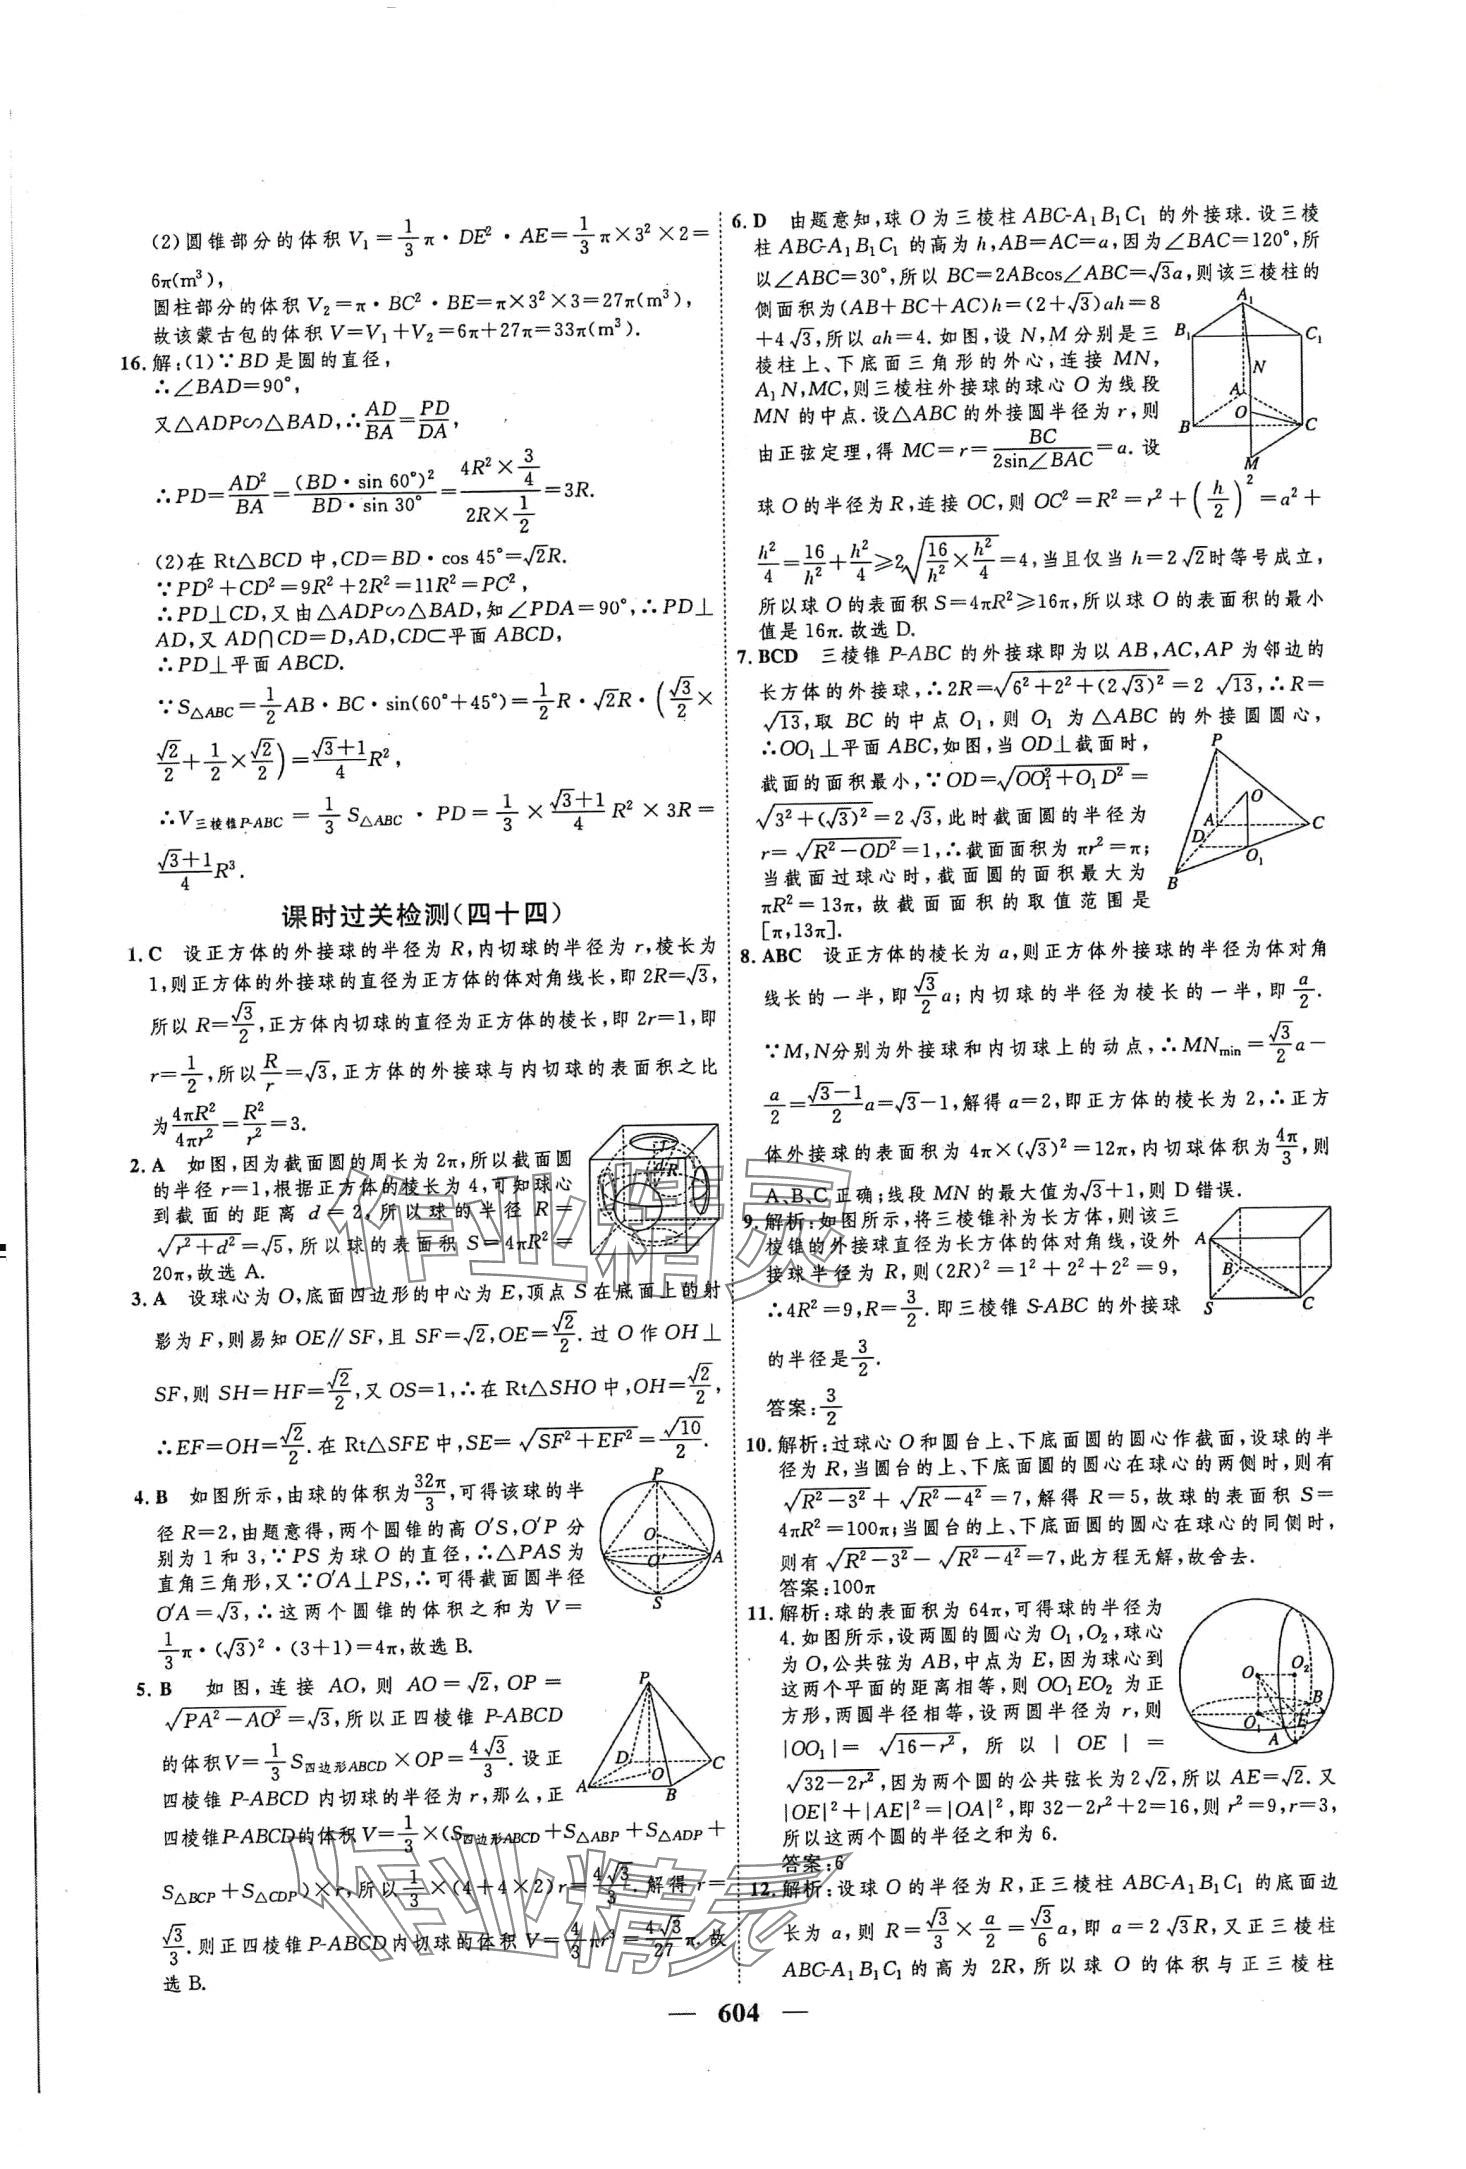 (2)圆锥部分的体积 V₁=1/3π·DE²·AE=1/3π×3²×2=
6π(m³),
圆柱部分的体积 V₂=π·BC²·BE=π×3²×3=27π(m³),
故该蒙古包的体积 V=V₁+V₂=6π+27π=33π(m³).
16.解:(1)∵BD 是圆的直径,
∴∠BAD=90°,
又△ADP∽△BAD,∴AD/BA=PD/DA,
∴PD=AD²/BA=(BD·sin 60°)²/(BD·sin 30°)=(4R²×3/4)/(2R×1/2)=3R.
(2)在 Rt△BCD 中,CD=BD·cos 45°=√2R.
∵PD²+CD²=9R²+2R²=11R²=PC²,
∴PD⊥CD,又由△ADP∽△BAD,知∠PDA=90°,∴PD⊥
AD,又 AD∩CD=D,AD,CD⊂平面 ABCD,
∴PD⊥平面 ABCD.
∵S△ABC=1/2AB·BC·sin(60°+45°)=1/2R·√2R·(√3/2×
√2/2+1/2×√2/2)=(√3+1)/4R²,
∴V三棱锥P-ABC=1/3S△ABC·PD=1/3×(√3+1)/4R²×3R=
(√3+1)/4R³.
课时过关检测(四十四)
1.C 设正方体的外接球的半径为 R,内切球的半径为 r,棱长为
1,则正方体的外接球的直径为正方体的体对角线长,即 2R=√3,
所以 R=√3/2,正方体内切球的直径为正方体的棱长,即 2r=1,即
r=1/2,所以R/r=√3,正方体的外接球与内切球的表面积之比
为4πR²/4πr²=R²/r²=3.
2.A 如图,因为截面圆的周长为2π,所以截面圆
的半径 r=1,根据正方体的棱长为 4,可知球心
到截面的距离 d=2,所以球的半径 R=
√(r²+d²)=√5,所以球的表面积 S=4πR²=
20π,故选 A.
r
d R
3.A 设球心为 O,底面四边形的中心为 E,顶点 S 在底面上的射
影为 F,则易知 OE∥SF,且 SF=√2,OE=√2/2.过 O 作 OH⊥
SF,则 SH=HF=√2/2,又 OS=1,∴在 Rt△SHO 中,OH=√2/2,
∴EF=OH=√2/2.在 Rt△SFE 中,SE=√(SF²+EF²)=√10/2.
4.B 如图所示,由球的体积为32π/3,可得该球的半
径 R=2,由题意得,两个圆锥的高 O′S,O′P 分
别为 1 和 3,∵PS 为球 O 的直径,∴△PAS 为
直角三角形,又∵O′A⊥PS,∴可得截面圆半径
O′A=√3,∴这两个圆锥的体积之和为 V=
1/3π·(√3)²·(3+1)=4π,故选 B.
P
O
O′ A
S
5.B 如图,连接 AO,则 AO=√2,OP=
√(PA²−AO²)=√3,所以正四棱锥 P-ABCD
的体积V=1/3S四边形ABCD×OP=4√3/3.设正
四棱锥 P-ABCD 内切球的半径为 r,那么,正
四棱锥P-ABCD的体积V=1/3×(S四边形ABCD+S△ABP+S△ADP+
S△BCP+S△CDP)×r,所以1/3×(4+4×2)r=4√3/3.解得 r=
√3/3.则正四棱锥P-ABCD内切球的体积V=4/3πr³=4√3/27π.故
选 B.
P
D C
O
A B
6.D 由题意知,球 O 为三棱柱 ABC-A₁B₁C₁ 的外接球.设三棱
柱 ABC-A₁B₁C₁ 的高为 h,AB=AC=a,因为∠BAC=120°,所
以∠ABC=30°,所以 BC=2ABcos∠ABC=√3a,则该三棱柱的
侧面积为(AB+BC+AC)h=(2+√3)ah=8
+4√3,所以 ah=4.如图,设 N,M 分别是三
棱柱上、下底面三角形的外心,连接 MN,
A₁N,MC,则三棱柱外接球的球心 O 为线段
MN 的中点.设△ABC 的外接圆半径为 r,则
由正弦定理,得 MC=r=BC/(2sin∠BAC)=a.设
球 O 的半径为 R,连接 OC,则 OC²=R²=r²+(h/2)²=a²+
h²/4=16/h²+h²/4≥2√(16/h²×h²/4)=4,当且仅当 h=2√2时等号成立,
所以球 O 的表面积 S=4πR²≥16π,所以球 O 的表面积的最小
值是 16π.故选 D.
A₁
B₁ C₁
N
A
O
B C
M
7.BCD 三棱锥 P-ABC 的外接球即为以 AB,AC,AP 为邻边的
长方体的外接球,∴2R=√(6²+2²+(2√3)²)=2√13,∴R=
√13,取 BC 的中点 O₁,则 O₁ 为△ABC 的外接圆圆心,
∴OO₁⊥平面 ABC,如图,当 OD⊥截面时,
截面的面积最小,∵OD=√(OO₁²+O₁D²)=
√(3²+(√3)²)=2√3,此时截面圆的半径为
r=√(R²−OD²)=1,∴截面面积为 πr²=π;
当截面过球心时,截面圆的面积最大为
πR²=13π,故截面面积的取值范围是
[π,13π].
P
O
A C
D
O₁
B
8.ABC 设正方体的棱长为 a,则正方体外接球的半径为体对角
线长的一半,即√3/2a;内切球的半径为棱长的一半,即a/2.
∵M,N分别为外接球和内切球上的动点,∴MNmin=√3/2a−
a/2=(√3−1)/2a=√3−1,解得 a=2,即正方体的棱长为 2,∴正方
体外接球的表面积为 4π×(√3)²=12π,内切球体积为4π/3,则
A、B、C 正确;线段 MN 的最大值为√3+1,则 D 错误.
9.解析:如图所示,将三棱锥补为长方体,则该三
棱锥的外接球直径为长方体的体对角线,设外
接球半径为 R,则(2R)²=1²+2²+2²=9,
∴4R²=9,R=3/2.即三棱锥 S-ABC 的外接球
的半径是3/2.
答案:3/2
A
B
S C
10.解析:过球心 O 和圆台上、下底面圆的圆心作截面,设球的半
径为 R,当圆台的上、下底面圆的圆心在球心的两侧时,则有
√(R²−3²)+√(R²−4²)=7,解得 R=5,故球的表面积 S=
4πR²=100π;当圆台的上、下底面圆的圆心在球心的同侧时,
则有√(R²−3²)−√(R²−4²)=7,此方程无解,故舍去.
答案:100π
11.解析:球的表面积为 64π,可得球的半径为
4.如图所示,设两圆的圆心为 O₁,O₂,球心
为 O,公共弦为 AB,中点为 E,因为球心到
这两个平面的距离相等,则 OO₁EO₂ 为正
方形,两圆半径相等,设两圆半径为 r,则
|OO₁|=√(16−r²),所以|OE|=
√(32−2r²),因为两个圆的公共弦长为2√2,所以 AE=√2.又
|OE|²+|AE|²=|OA|²,即 32−2r²+2=16,则 r²=9,r=3,
所以这两个圆的半径之和为 6.
答案:6
O O₂
O₁ E B
A
12.解析:设球 O 的半径为 R,正三棱柱 ABC-A₁B₁C₁ 的底面边
长为 a,则 R=√3/3×a/2=√3/6a,即 a=2√3R,又正三棱柱
ABC-A₁B₁C₁ 的高为 2R,所以球 O 的体积与正三棱柱
— 604 —
作业精灵
作业精灵